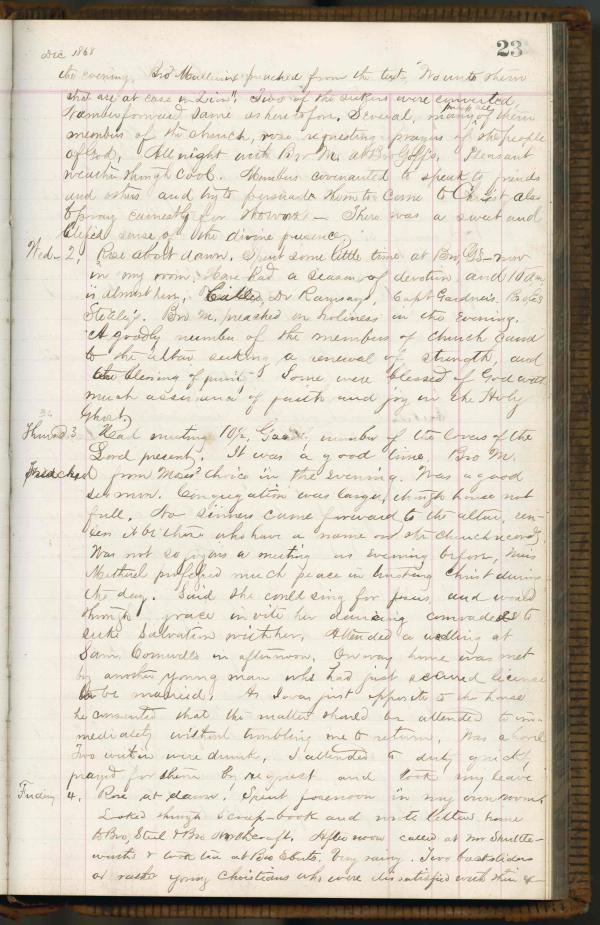 Dec 1868
23
the evening. Bro Mullenix preached from the text, "Wo unto them
that are at ease in Zion". Two of the seekers were converted,
came forward same as heretofore. Several, many of them
members of the church, rose, requesting prayers of the people
of God, All night with Bro M. at Bro Goff's. Pleasant
weather though cool. Members covenanted to speak to friends
and others and try to persuade them to come to Christ also
to pray earnestly for the work — There was a sweet and
sense of the divine presence
Wed- 2, Rose about dawn. Spent some little time at Bro, G's— now
in my room. Have had a season of devotion and 10 am
is almost here, Called, Dr Ramsay, Capt Gardner's. Bro
Bro M. preached on holiness in the evening.
A goodly number of the members of church came
to the altar seeking a renewal of strength, and
the blessing of purity. Some were blessed of God with
much assurance of faith and joy in the Holy
Ghost.
Thurs 3 Had meeting 10½, Good number of the lovers of the
Lord present. It was a good time. Bro M.
Preached from Moses' choice in the evening. Was a good
sermon. Congregation was large, though house not
full. No sinners came forward to the altar, un-
less it be those who have a name on the church record.
Was not so joyous a meeting as evening before, Miss
professed much peace in trusting Christ during
the day. Said she could sing for Jesus and would
through grace invite her dancing comrades to
seek salvation with her. Attended a wedding at
Sam. Cornwells in afternoon. On way home was met
by another young man who had just secured license
to be married. As I was just opposite to the house
he consented that the matter should be attended to im-
mediately without troubling me to return. Was a hovel
Two were drunk. I attended to duty quick,
prayed for them by request and took my leave
Friday 4. Rose at dawn. Spent forenoon in my own room.
Looked through scrap-book and wrote letters home
to Bro, Steel & Bro Northcraft. Afternoon called at Mr Shuttle-
worths & took tea at Bro Eberts. Very rainy. Two backsliders
or rather young Christians who were dissatisfied with their